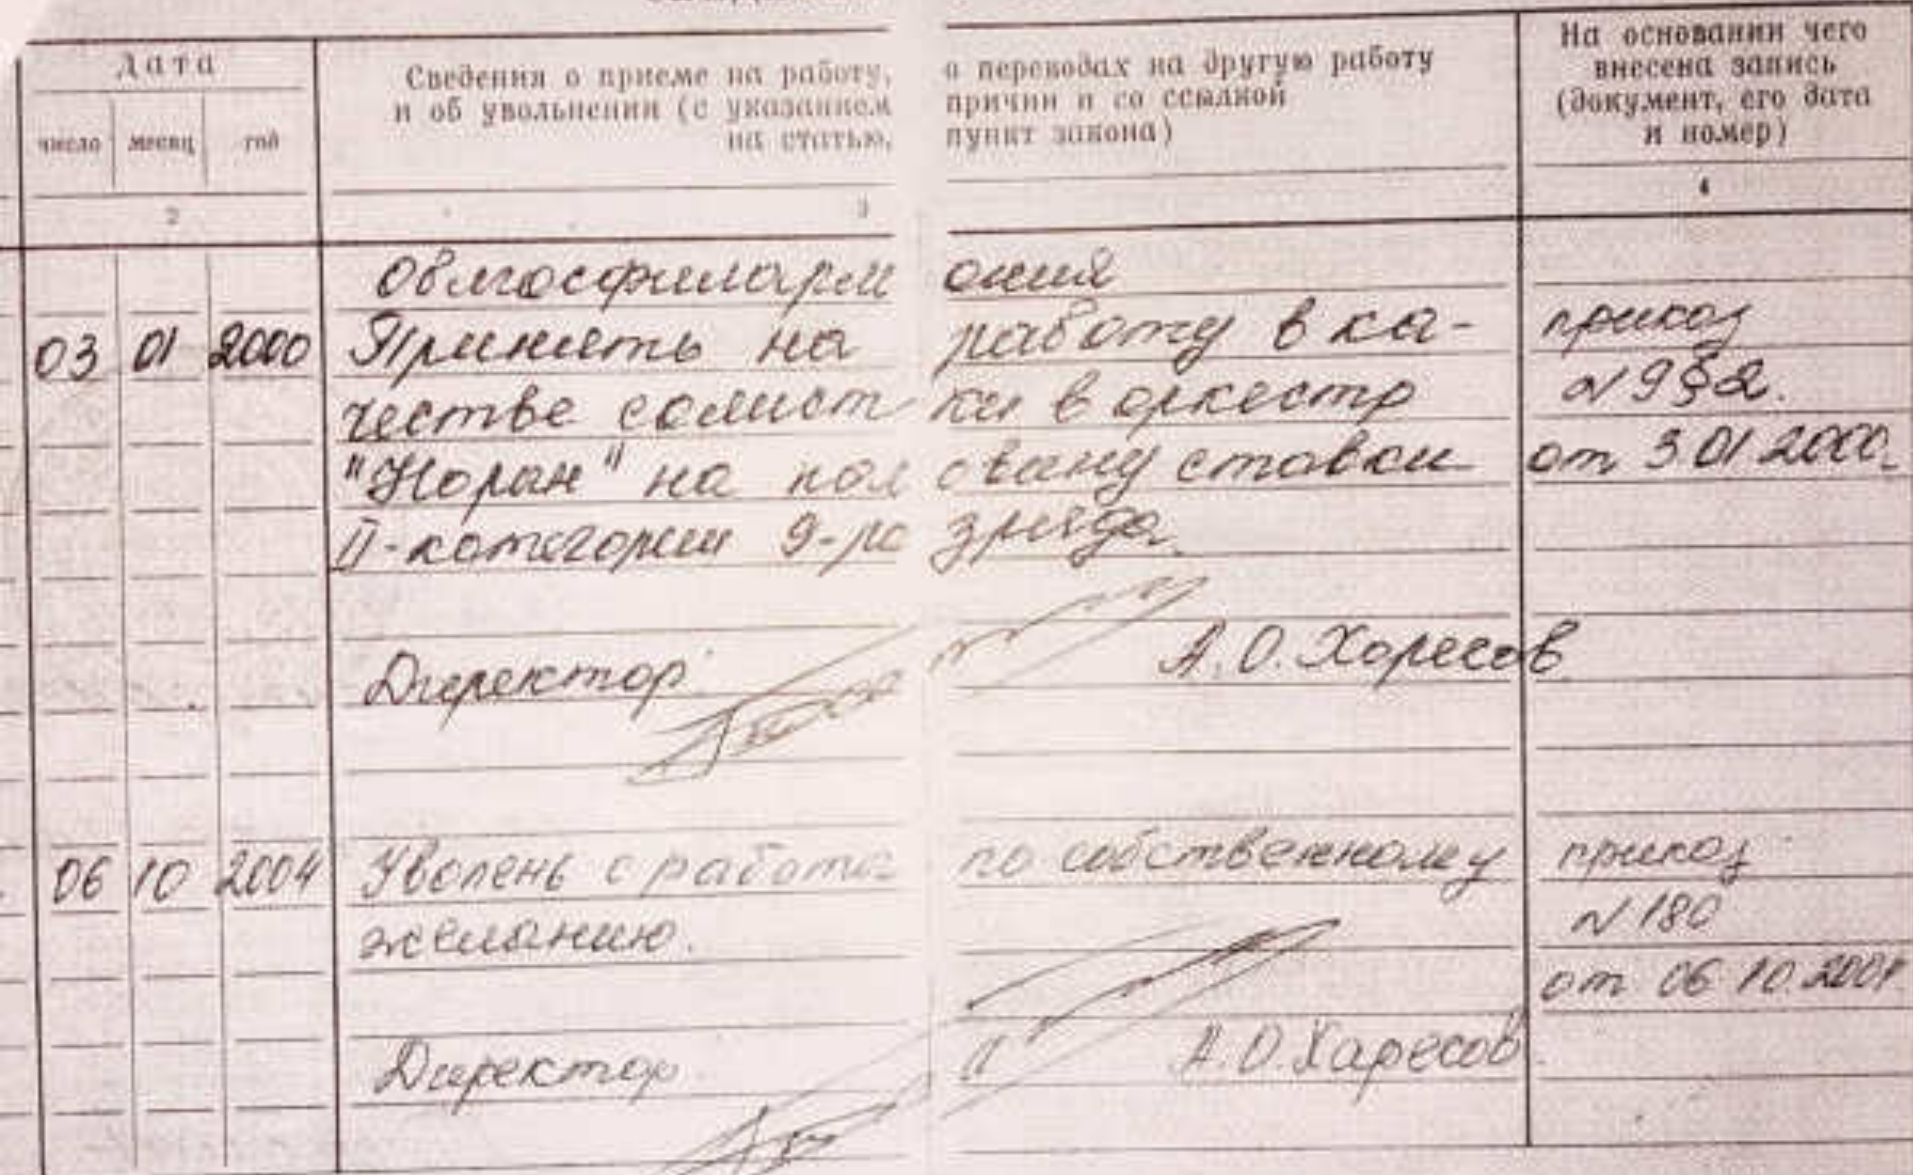 Дата
Сведения о приеме на работу, о переводах на другую работу
и об увольнении (с указанием причин и со ссылкой
на статью, пункт закона)
На основании чего
внесена запись
(документ, его дата
и номер)
число месяц год
2 3 4
Облгосфилармония
03 01 2000 Принять на работу в ка- приказ
честве солистки в оркестр N 9 §2.
"Норан" на половину ставки от 3 01 2000
II-категории 9-разряда.
Директор А. О. Харесов
06 10 2004 Уволень с работы по собственному приказ
желанию. N 180
от 06 10 2004
Директор А. О. Харесов